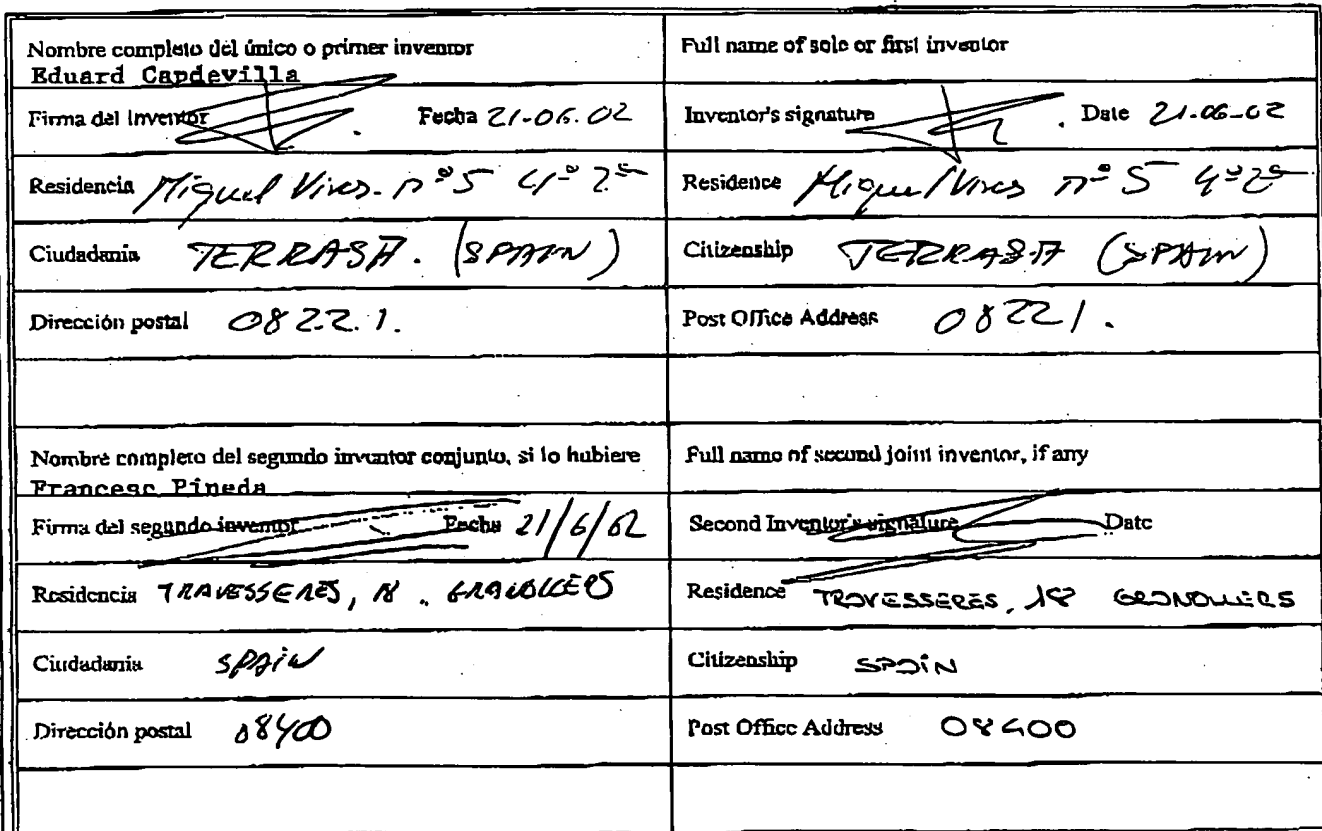 Nombre completo del único o primer inventor
Eduard Capdevilla
Full name of sole or first inventor
Firma del inventor Fecha 21-06.02
Inventor's signature Date 21-06-02
Residencia Miquel Vives. nº 5 4º 2ª
Residence Miquel Vives nº 5 4º 2ª
Ciudadania TERRASA. (SPAIN)
Citizenship TERRASA (SPAIN)
Dirección postal 08221.
Post Office Address 08221.
Nombre completo del segundo inventor conjunto, si lo hubiere
Francesc Pineda
Full name of second joint inventor, if any
Firma del segundo inventor Fecha 21/6/02
Second Inventor's signature Date
Residencia TRAVESSERES, 18. GRANOLLERS
Residence TRAVESSERES, 18 GRANOLLERS
Ciudadania SPAIN
Citizenship SPAIN
Dirección postal 08400
Post Office Address 08400